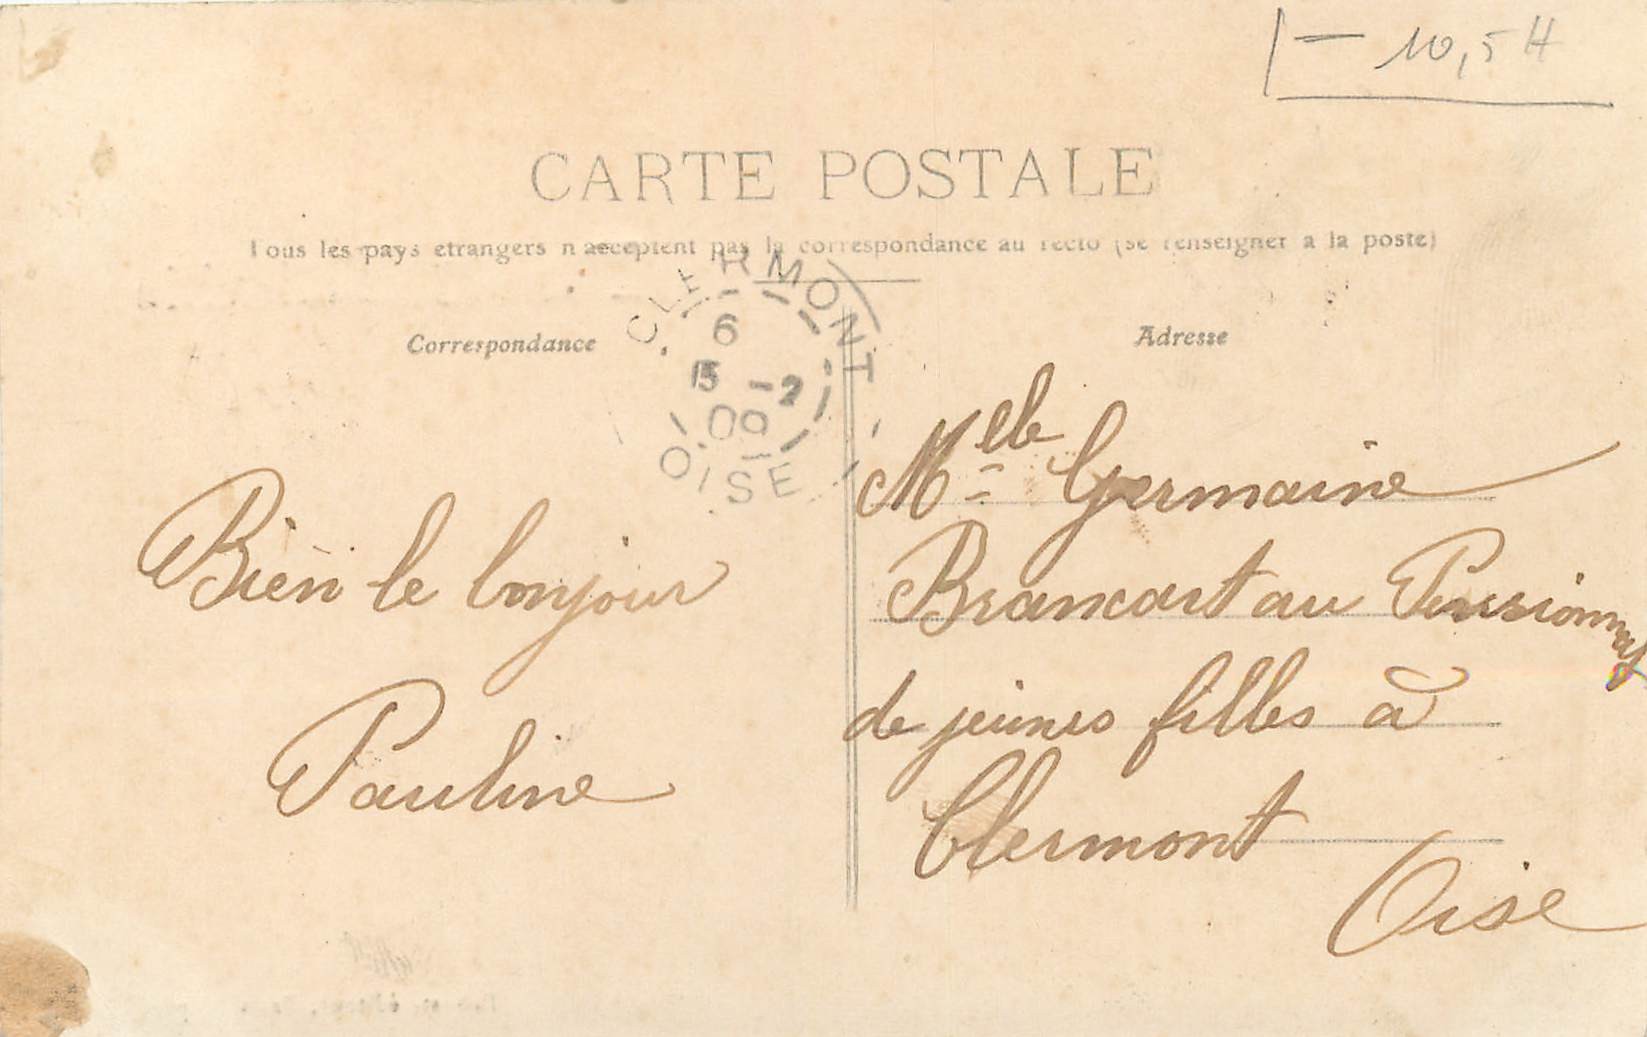 — 10,5 H
CARTE POSTALE
Tous les pays etrangers n'acceptent pas la correspondance au recto (se renseigner a la poste)
CLERMONT
6
15 -2
09
OISE
Correspondance
Adresse
Bien le bonjour
Pauline
Melle Germaine
Brancart au Penssionnat
de jeunes filles à
Clermont
Oise